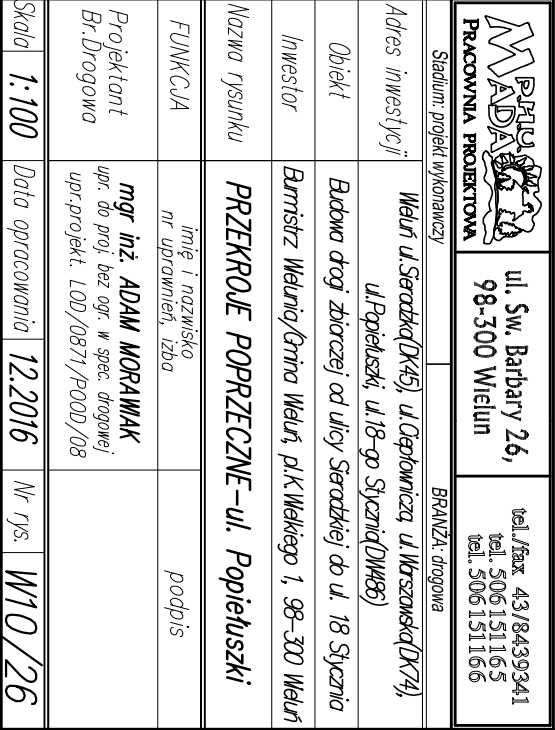 P.H.U.
MADA
PRACOWNIA PROJEKTOWA
ul. Sw. Barbary 26,
98-300 Wielun
tel./fax 43/8439341
tel. 506151165
tel. 506151166
Stadium: projekt wykonawczy
BRANŻA: drogowa
Adres inwestycji
Wieluń ul.Sieradzka(DK45), ul.Ciepłownicza, ul.Warszawska(DK74),
ul.Popiełuszki, ul.18-go Stycznia(DW486)
Obiekt
Budowa drogi zbiorczej od ulicy Sieradzkiej do ul. 18 Stycznia
Inwestor
Burmistrz Wielunia/Gmina Wieluń, pl.K.Wielkiego 1, 98-300 Wieluń
Nazwa rysunku
PRZEKROJE POPRZECZNE-ul. Popiełuszki
FUNKCJA
imię i nazwisko
nr uprawnień, izba
podpis
Projektant
Br.Drogowa
mgr inż. ADAM MORAWIAK
upr. do proj. bez ogr. w spec. drogowej
upr.projekt. LOD/0871/POOD/08
Skala
1:100
Data opracowania
12.2016
Nr rys.
W10/26